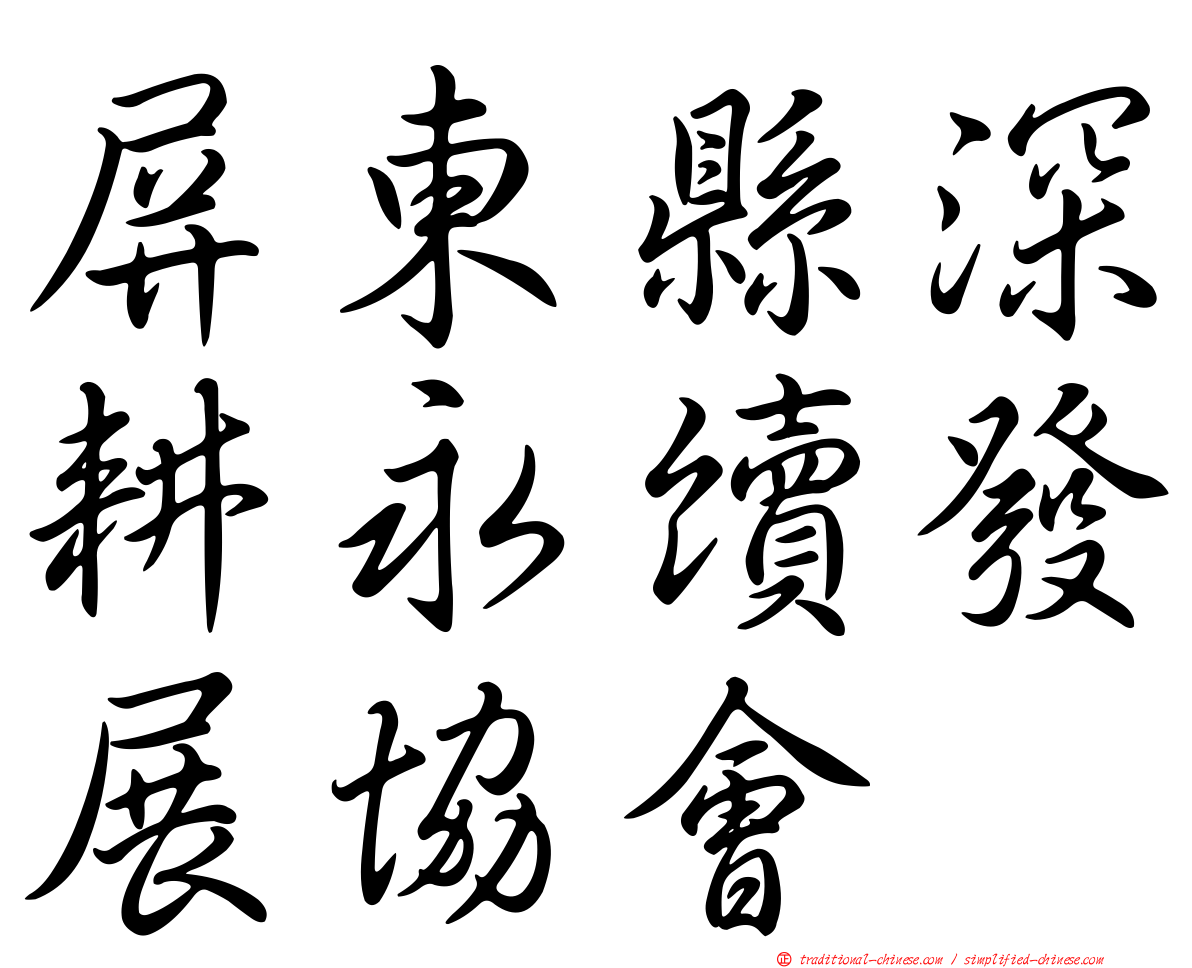 屏東縣深
耕永續發
展協會
㊣ traditional-chinese.com / simplified-chinese.com